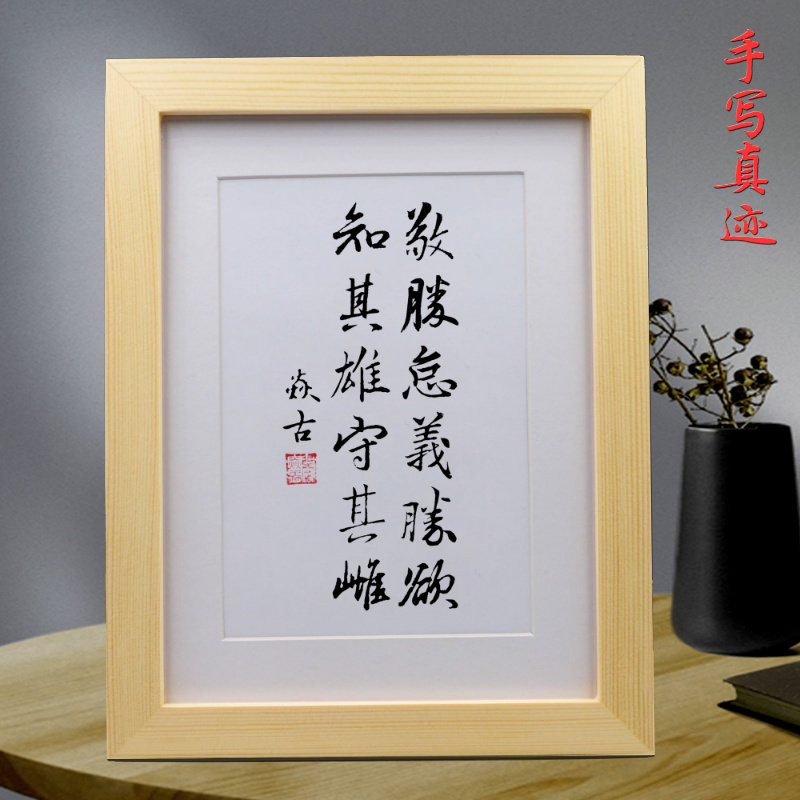 敬勝怠義勝欲
知其雄守其雌
焱古
手写真迹